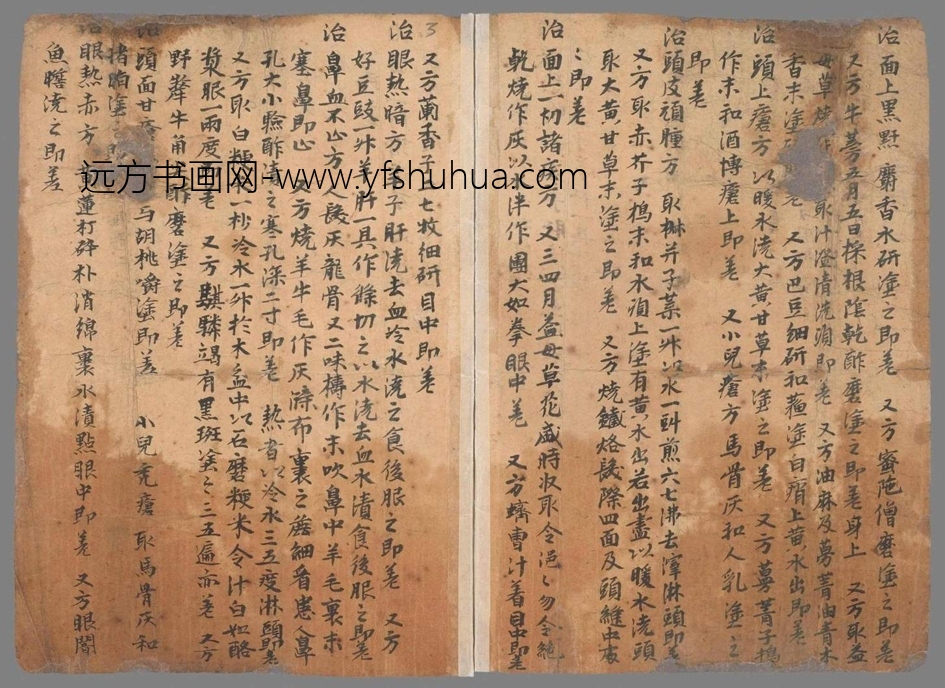 治面上黑䵟 麝香水研塗之即差 又方蜜陁僧磨塗之即差
又方牛蒡五月五日採根陰乾酢磨塗之即差身上 又方取益
母草燒 取汁澄清洗頭即差 又方油麻及蔓菁油青木
香末塗 又方巴豆細研和 塗白屑上黃水出即差
治頭上瘡方 以暖水洗大黃甘草末塗之即差 又方蔓菁子擣
作末和酒傅瘡上即差 又小兒瘡方馬骨灰和人乳塗之
即差
治頭皮頑腫方 取 子葉一升以水一 煎六七沸去滓淋頭即差
又方取赤芥子擣末和水頭上塗有黃水出若出盡以暖水洗頭
取大黃甘草末塗之即差 又方燒鐵烙髮際四面及頭縫中
即差
治面上一切諸瘡方 又三四月益母草花盛時收取令 勿令絕
乾燒作灰以水伴作團大如拳眼中差 又方蠐曹汁着目中即差
3 又方蘭香子七枚細研目中即差
治眼熱暗方 子肝澆去血冷水澆之食後服之即差 又方
好豆豉一升羊肝一具作條切之以水澆去血水漬食後服之即差
治鼻血不止方 人髮灰龍骨又二味擣作末吹鼻中羊毛裏末
塞鼻即止 又方燒羊牛毛作灰 布裹之 細看患人鼻
孔大小 酢 之塞孔深二寸即差 熱者以冷水三五度淋頭即差
又方取白粳 一 冷水一升於木盆中以石磨粳米令汁白如酪
漿眼一兩度 差 又方騏驎竭有黑斑塗之三五遍亦差 又方
野犛牛角酢磨塗之即差
治頭面甘瘡 与胡桃嚼塗即差 小兒禿瘡 取馬骨灰和
猪脂塗之
治眼熱赤方 蓮打碎朴消綿裹水漬點眼中即差 又方眼闇
魚膽澆之即差
远方书画网-www.yfshuhua.com